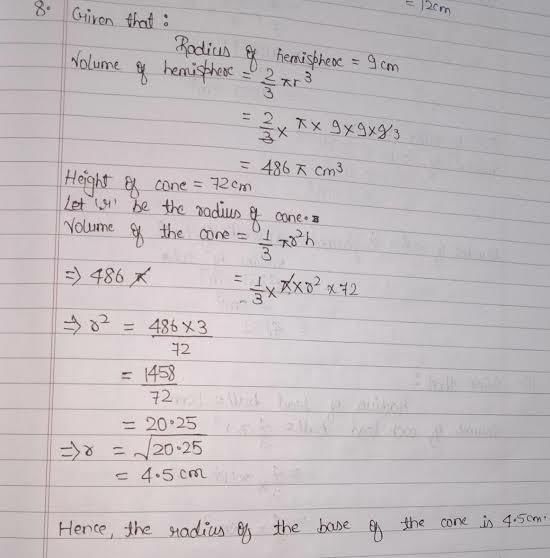 = 12cm
8. Given that :
Radius of hemisphere = 9cm
Volume of hemisphere = 2/3 πr³
= 2/3 × π × 9×9×9 3
= 486 π cm³
Height of cone = 72cm
Let 'r' be the radius of cone.
Volume of the cone = 1/3 πr²h
⇒ 486 π = 1/3 × π × r² × 72
⇒ r² = 486×3/72
= 1458/72
= 20.25
⇒ r = √20.25
= 4.5 cm
Hence, the radius of the base of the cone is 4.5cm.